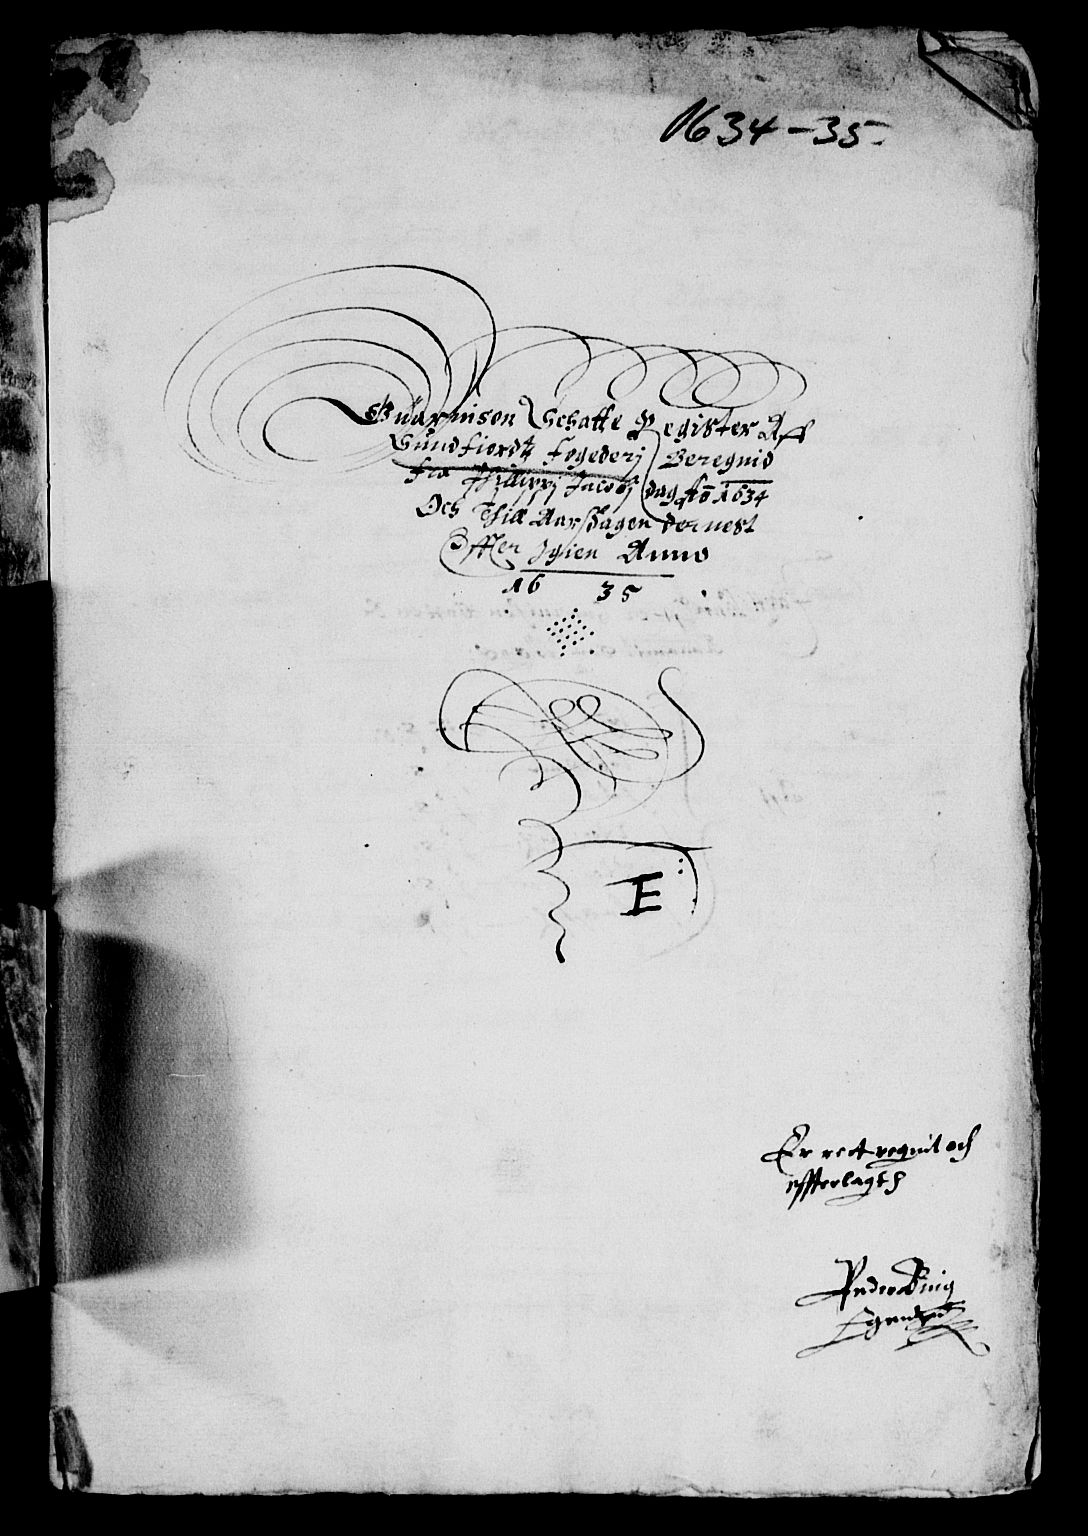 1634-35.
Guarnison Schatte Register Aff
Sundfiordtz fogederj Beregnid
fra Philippi Jacobj dag Ao 1634
Och Thill Aarsdagen dernest
Effter Igien Anno
16 35
E
Er rett regnit och
effterlagth
Peder
Egenhand